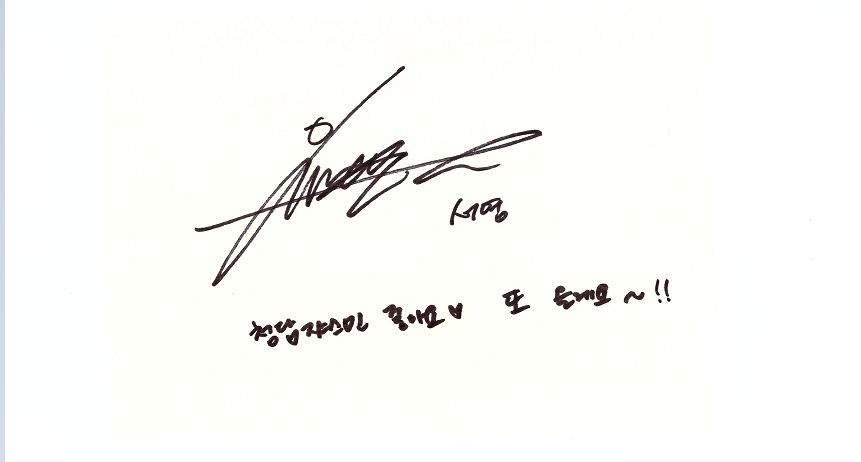 서영
청담쟈스민 좋아요♥ 또 올게요~!!